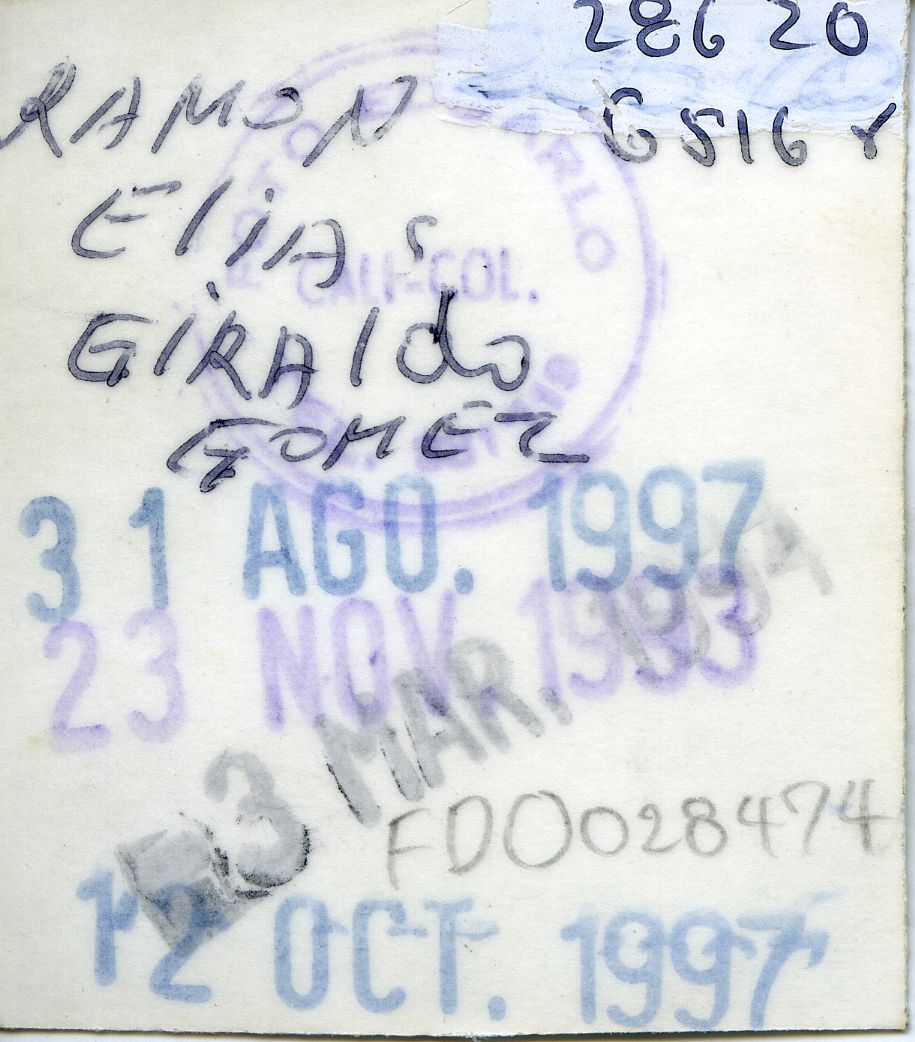 28620
RAMON
6516 Y
EliAs
CALI-COL.
GIRAldo
GOMEZ
31 AGO. 1997
23 NOV 1993
3 MAR. 1994
FD0028474
12 OCT. 1997